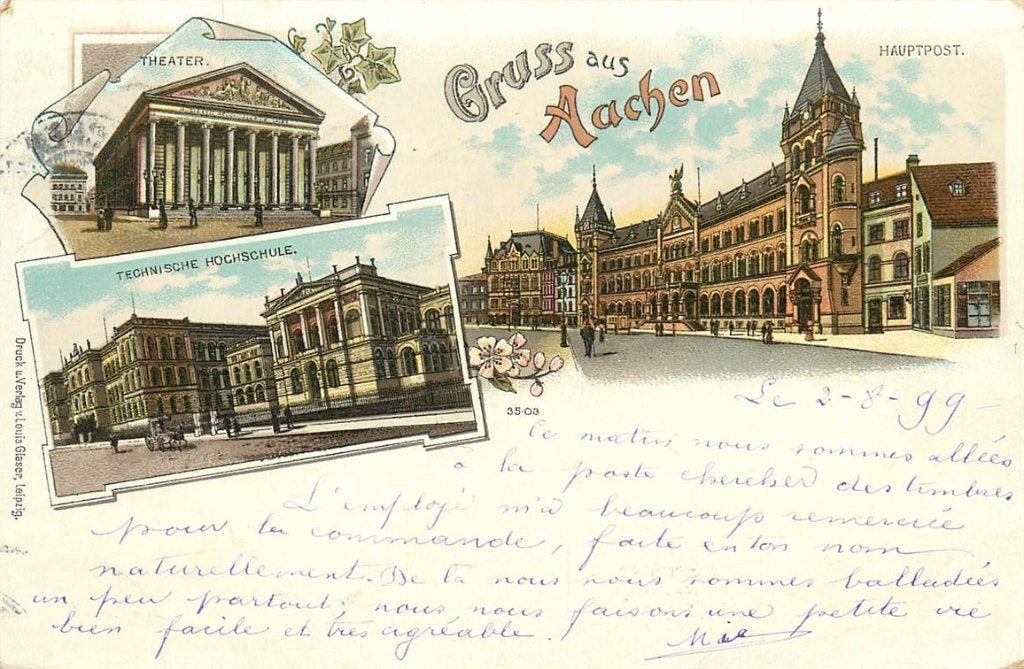 THEATER.
Gruss aus
Aachen
HAUPTPOST.
TECHNISCHE HOCHSCHULE.
Druck u. Verlag v. Louis Glaser, Leipzig.
35-03
Le 2-8-99-
Ce matin nous sommes allées
à la poste chercher des timbres
L'employé m'a beaucoup remerciée
pour la commande, faite en ton nom
naturellement. De là nous nous sommes balladées
un peu partout; nous nous faisons une petite vie
bien facile et très agréable.